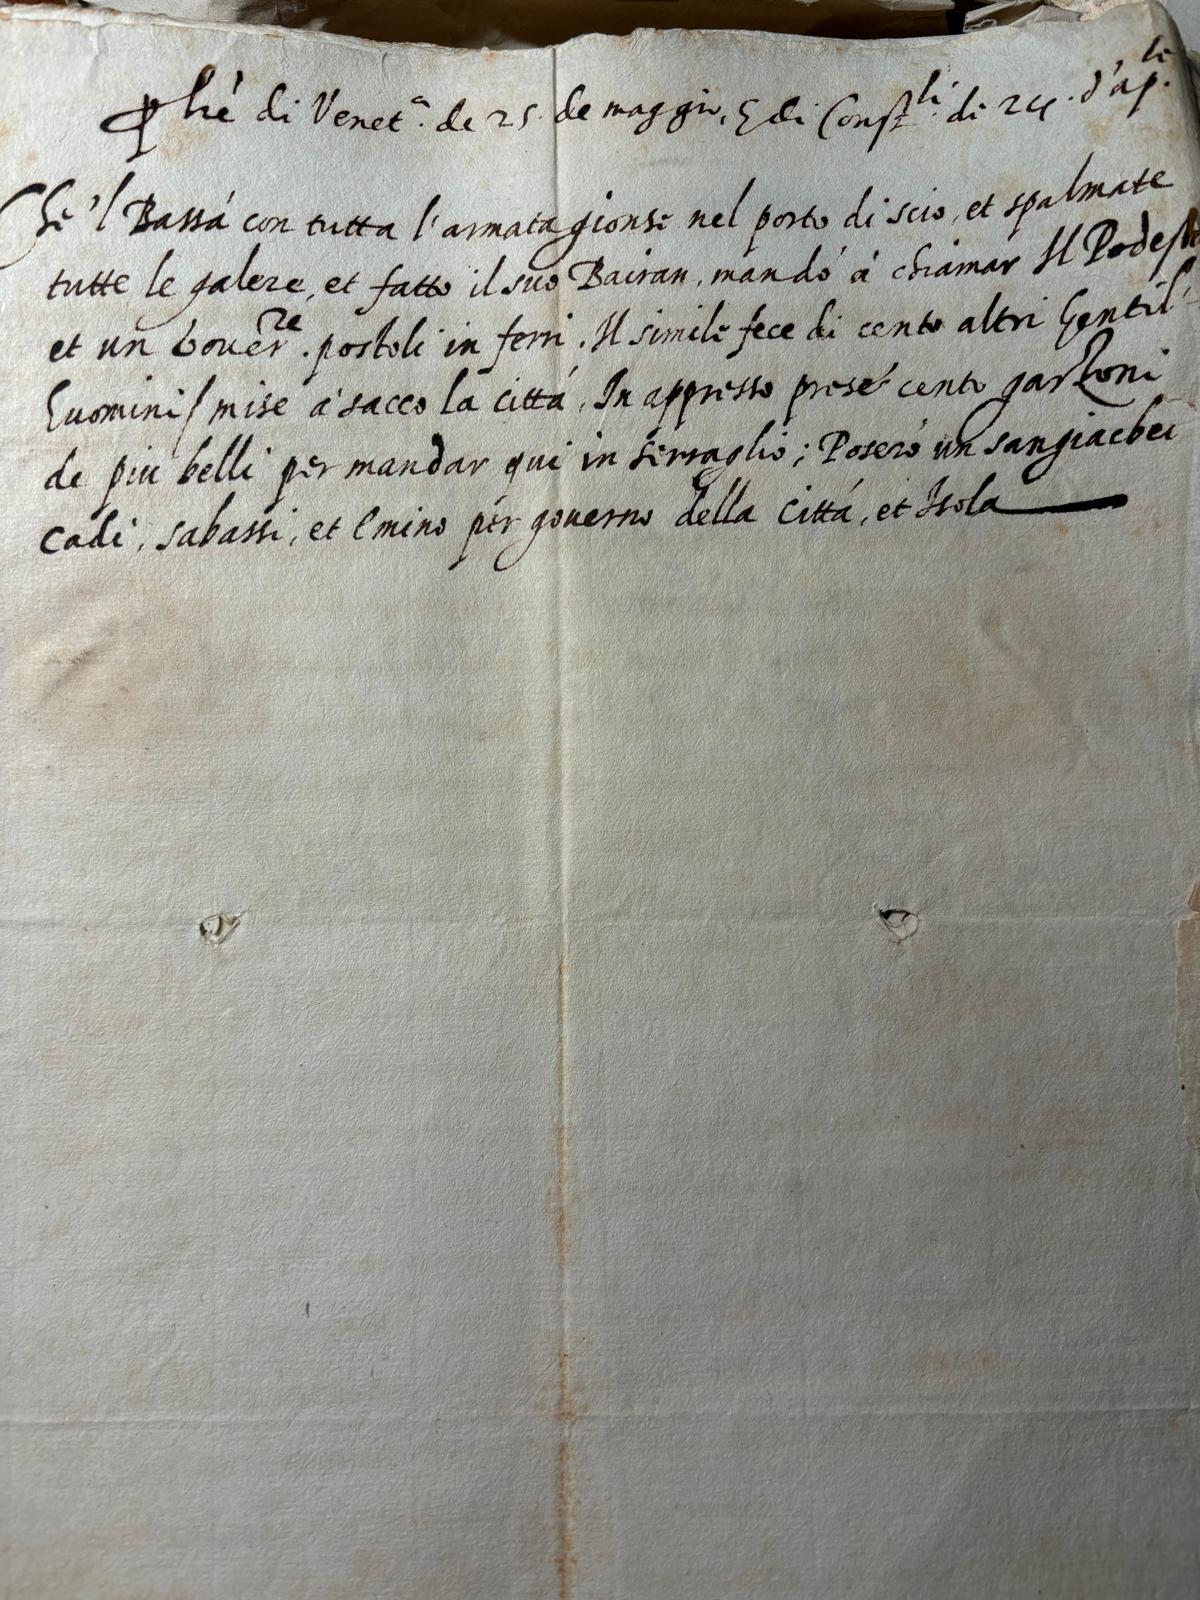 ꝑ lrẽ di Venetᵃ. de 25. de maggio, Et di Constᵖˡⁱ. di 24. d'apˡᵉ.
Che 'l Bassá con tutta l'armata gionse nel porto di scio, et spalmate
tutte le galere, et fatto il suo Bairan, mandó á chiamar Il Podestà
et un Gouerʳᵉ. postoli in ferri. Il simile fece di cento altri Gentil'
huomini / mise á sacco la cittá, In appresso prese cento garzoni
de piu belli per mandar qui in serraglio; Posero un sangiacbei
cadi, sabassi, et Emino per governo della Cittá, et Isola